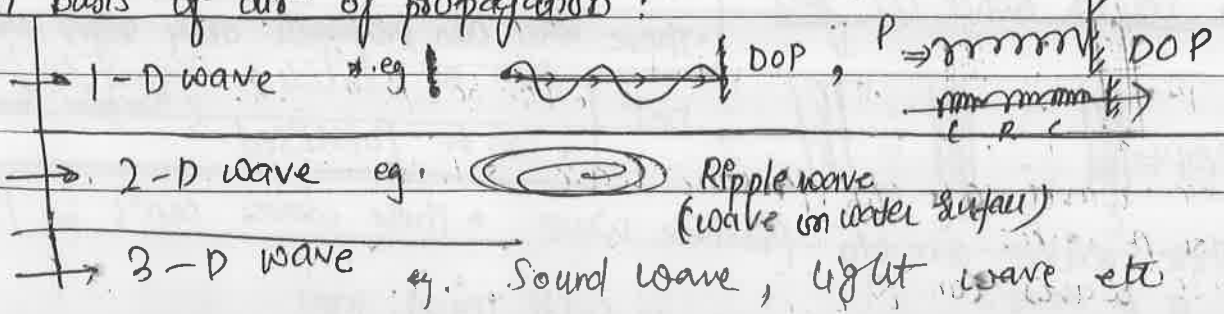 basis of dir of propagation :
→ 1-D wave *.eg DOP, P ⇒ DOP
C R C
→ 2-D wave eg. Ripple wave
(wave in water surface)
→ 3-D wave eg. Sound wave, light wave etc